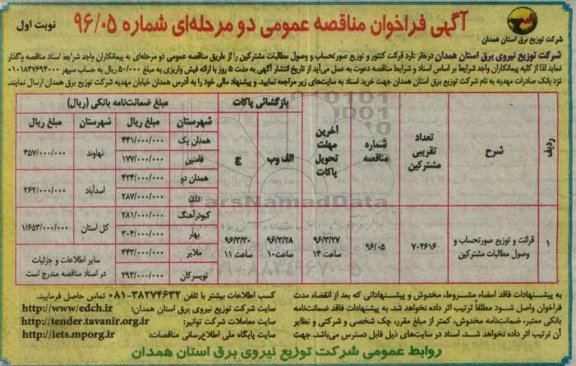 آگهی فراخوان مناقصه عمومی دو مرحله‌ای شماره ۹۶/۰۵
نوبت اول
شرکت توزیع برق استان همدان
شرکت توزیع نیروی برق استان همدان در نظر دارد قرائت کنتور و توزیع صورتحساب و وصول مطالبات مشترکین را از طریق مناقصه عمومی دو مرحله‌ای به پیمانکاران واجد شرایط اسناد مناقصه واگذار
نماید لذا از کلیه پیمانکاران واجد شرایط بر اساس اسناد و شرایط مناقصه دعوت به عمل می‌آید از تاریخ انتشار آگهی به مدت ۵ روز با ارائه فیش واریزی به مبلغ ۵۰/۰۰۰ ریال به حساب سپهر ۰۱۰۱۸۴۷۶۹۴۰۰۰
نزد بانک صادرات مهدیه به نام شرکت توزیع برق استان همدان جهت خرید اسناد به سایت‌های زیر مراجعه نمایید. و پیشنهاد مالی خود را به آدرس همدان خیابان مهدیه شرکت توزیع برق استان همدان ارسال نمایند.
ردیف
شرح
تعداد تقریبی مشترکین
شماره مناقصه
آخرین مهلت تحویل پاکات
بازگشائی پاکات
الف و ب
ج
مبلغ ضمانت‌نامه بانکی (ریال)
شهرستان
مبلغ ریال
شهرستان
مبلغ ریال
۱
قرائت و توزیع صورتحساب و وصول مطالبات مشترکین
۷۰۴۶۱۶
۹۶/۰۵
۹۶/۳/۲۷ ساعت ۱۴
۹۶/۳/۲۸ ساعت ۱۰
۹۶/۳/۳۰ ساعت ۱۱
همدان یک ۴۴۱/۰۰۰/۰۰۰
فامنین ۱۷۷/۰۰۰/۰۰۰
نهاوند ۴۵۷/۰۰۰/۰۰۰
همدان دو ۴۲۴/۰۰۰/۰۰۰
رزن ۲۸۷/۰۰۰/۰۰۰
اسدآباد ۲۶۲/۰۰۰/۰۰۰
کبودرآهنگ ۲۸۱/۰۰۰/۰۰۰
بهار ۳۰۴/۰۰۰/۰۰۰
کل استان ۱/۶۵۳/۰۰۰/۰۰۰
ملایر ۴۴۳/۰۰۰/۰۰۰
تویسرکان ۲۹۳/۰۰۰/۰۰۰
سایر اطلاعات و جزئیات در اسناد مناقصه مندرج است
به پیشنهادات فاقد امضاء مشروط، مخدوش و پیشنهاداتی که بعد از انقضاء مدت
فراخوان واصل شود مطلقا ترتیب اثر داده نخواهد شد. به پیشنهادات فاقد ضمانت‌نامه
بانکی معتبر، ضمانت‌نامه مخدوش، کمتر از مبلغ مقرر، چک شخصی و شرکتی و نظایر
آن ترتیب اثر داده نخواهد شد. اسناد در سایت‌های ذیل قابل دسترس می‌باشد. جهت
کسب اطلاعات بیشتر با تلفن ۳۸۲۷۴۶۳۲-۰۸۱ تماس حاصل فرمایید.
سایت شرکت توزیع نیروی برق استان همدان: http://www.edch.ir
سایت معاملات شرکت توانیر: http://tender.tavanir.org.ir
سایت پایگاه ملی اطلاع‌رسانی مناقصات: http://iets.mporg.ir
روابط عمومی شرکت توزیع نیروی برق استان همدان